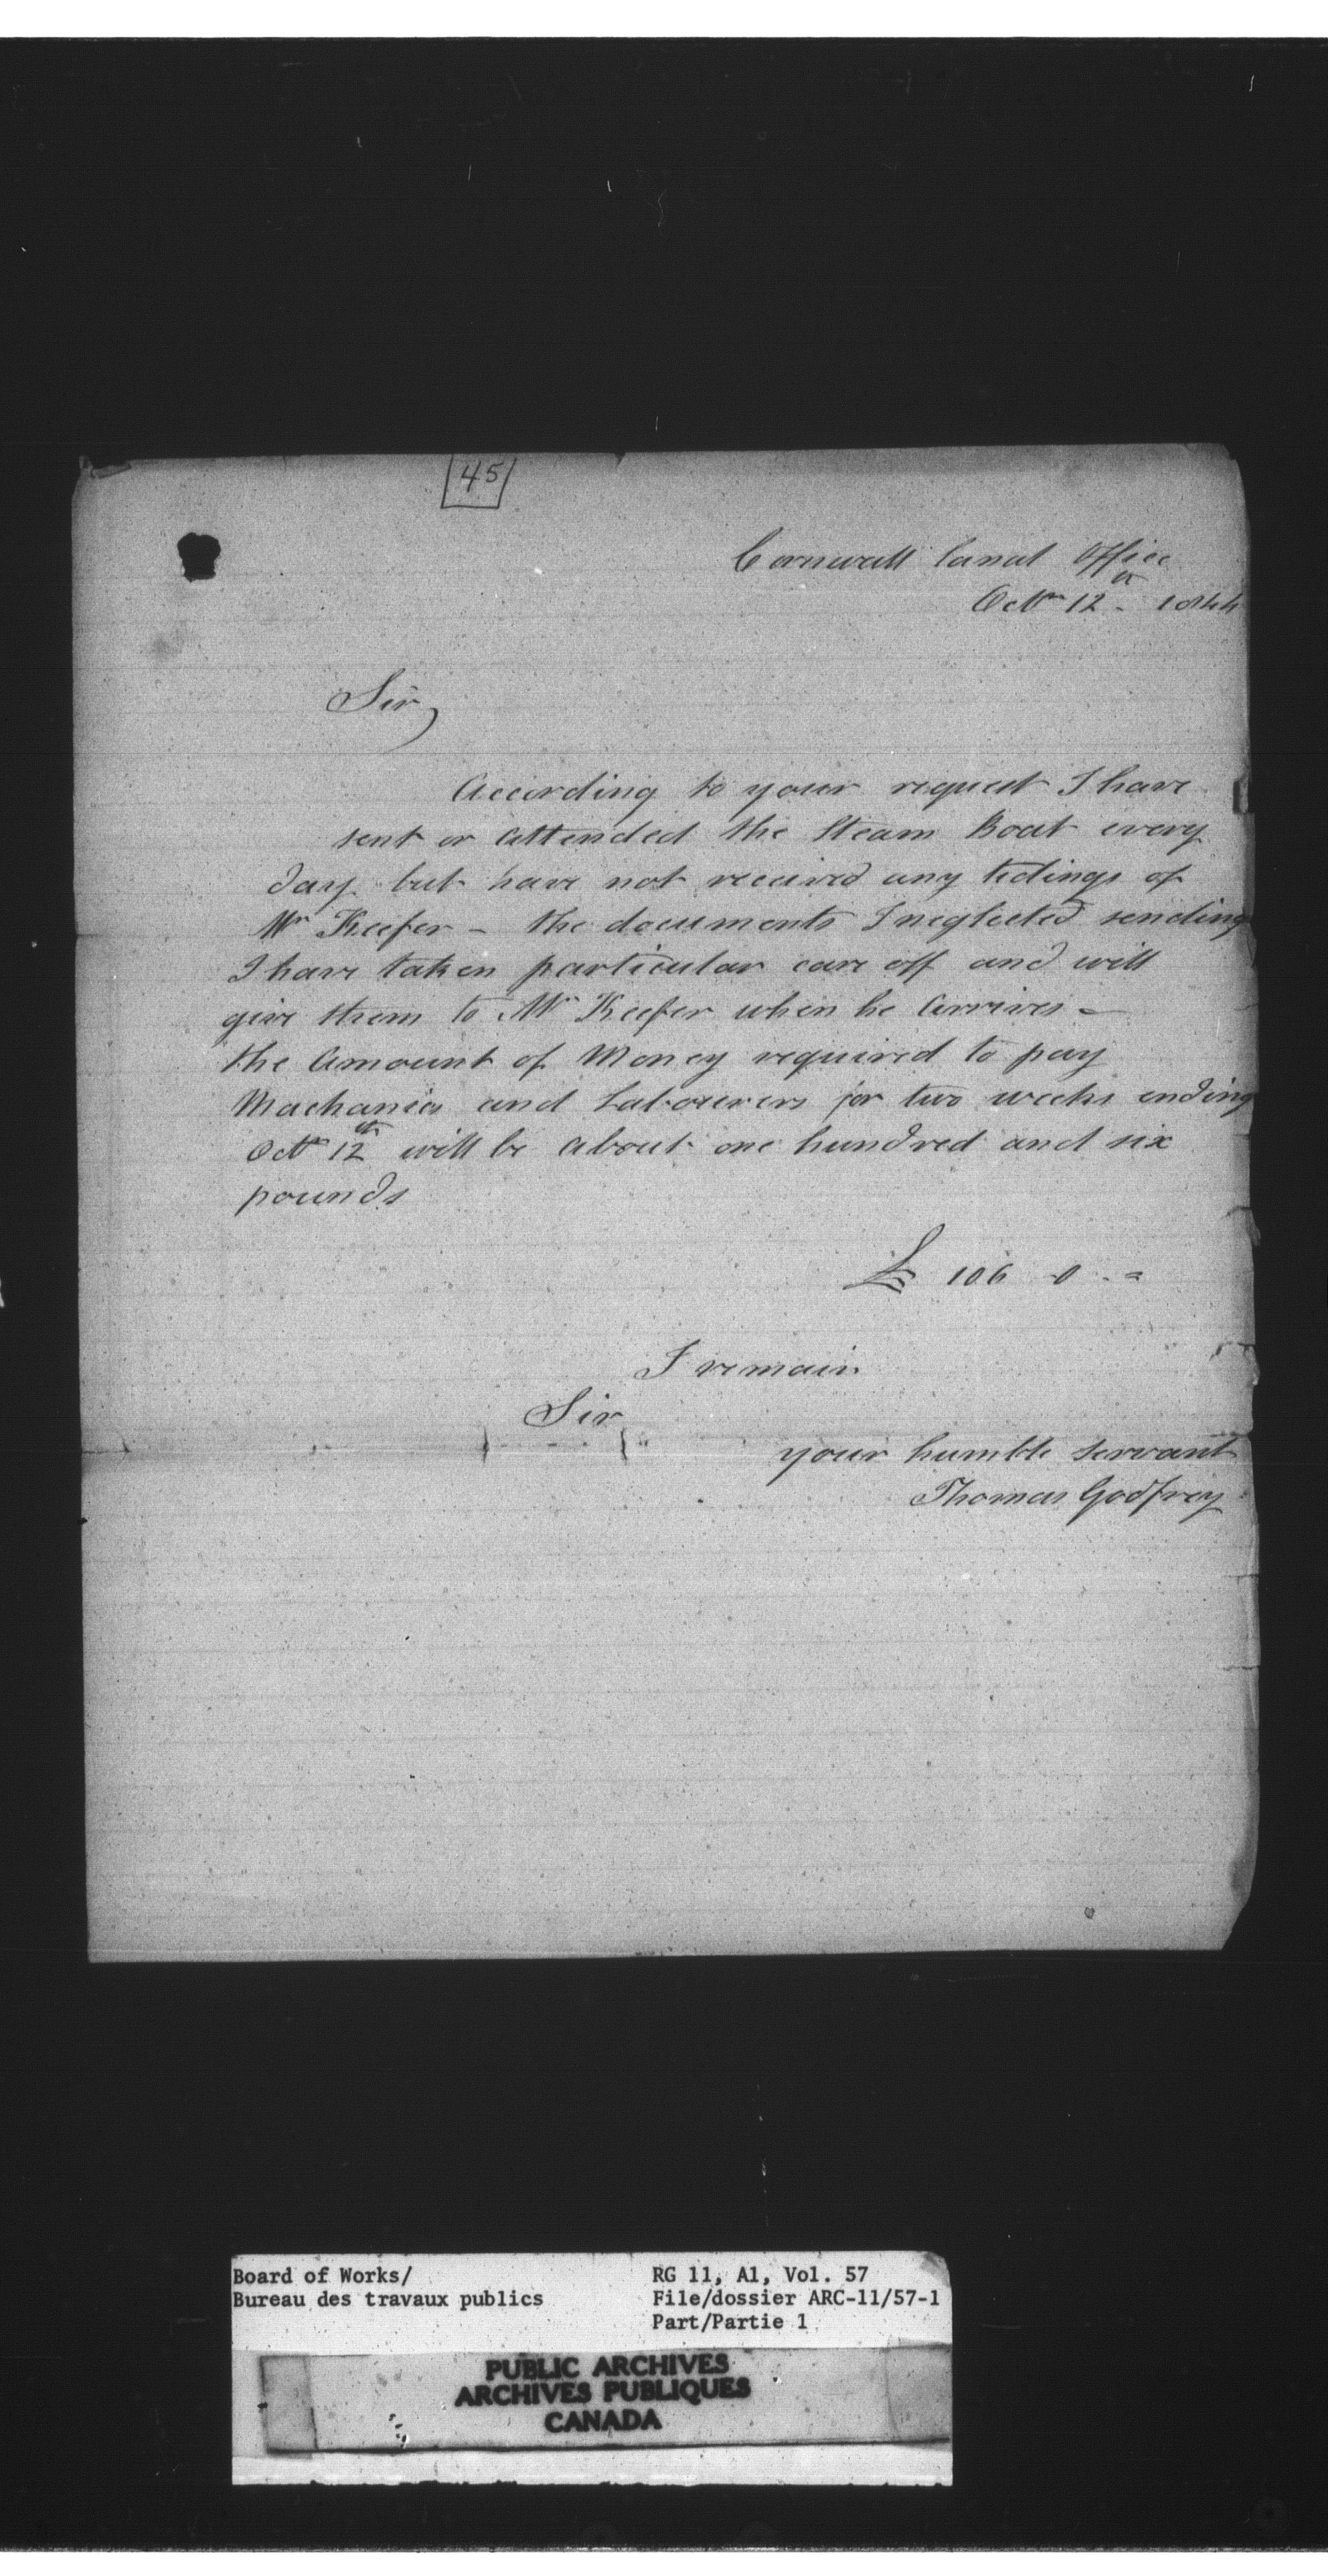 45
Cornwall Canal Office
Octr 12th 1844
Sir,
According to your request I have
sent or attended the Steam Boat every
day but have not received any tidings of
Mr Keefer – the documents I neglected sending
I have taken particular care off and will
give them to Mr Keefer when he arrives –
the Amount of Money required to pay
Machanics and Labourers for two weeks ending
Octr 12th will be about one hundred and six
pounds
£ 106 - 0 - =
I remain
Sir
your humble servant
Thomas Godfrey
Board of Works/
Bureau des travaux publics
RG 11, A1, Vol. 57
File/dossier ARC-11/57-1
Part/Partie 1
PUBLIC ARCHIVES
ARCHIVES PUBLIQUES
CANADA